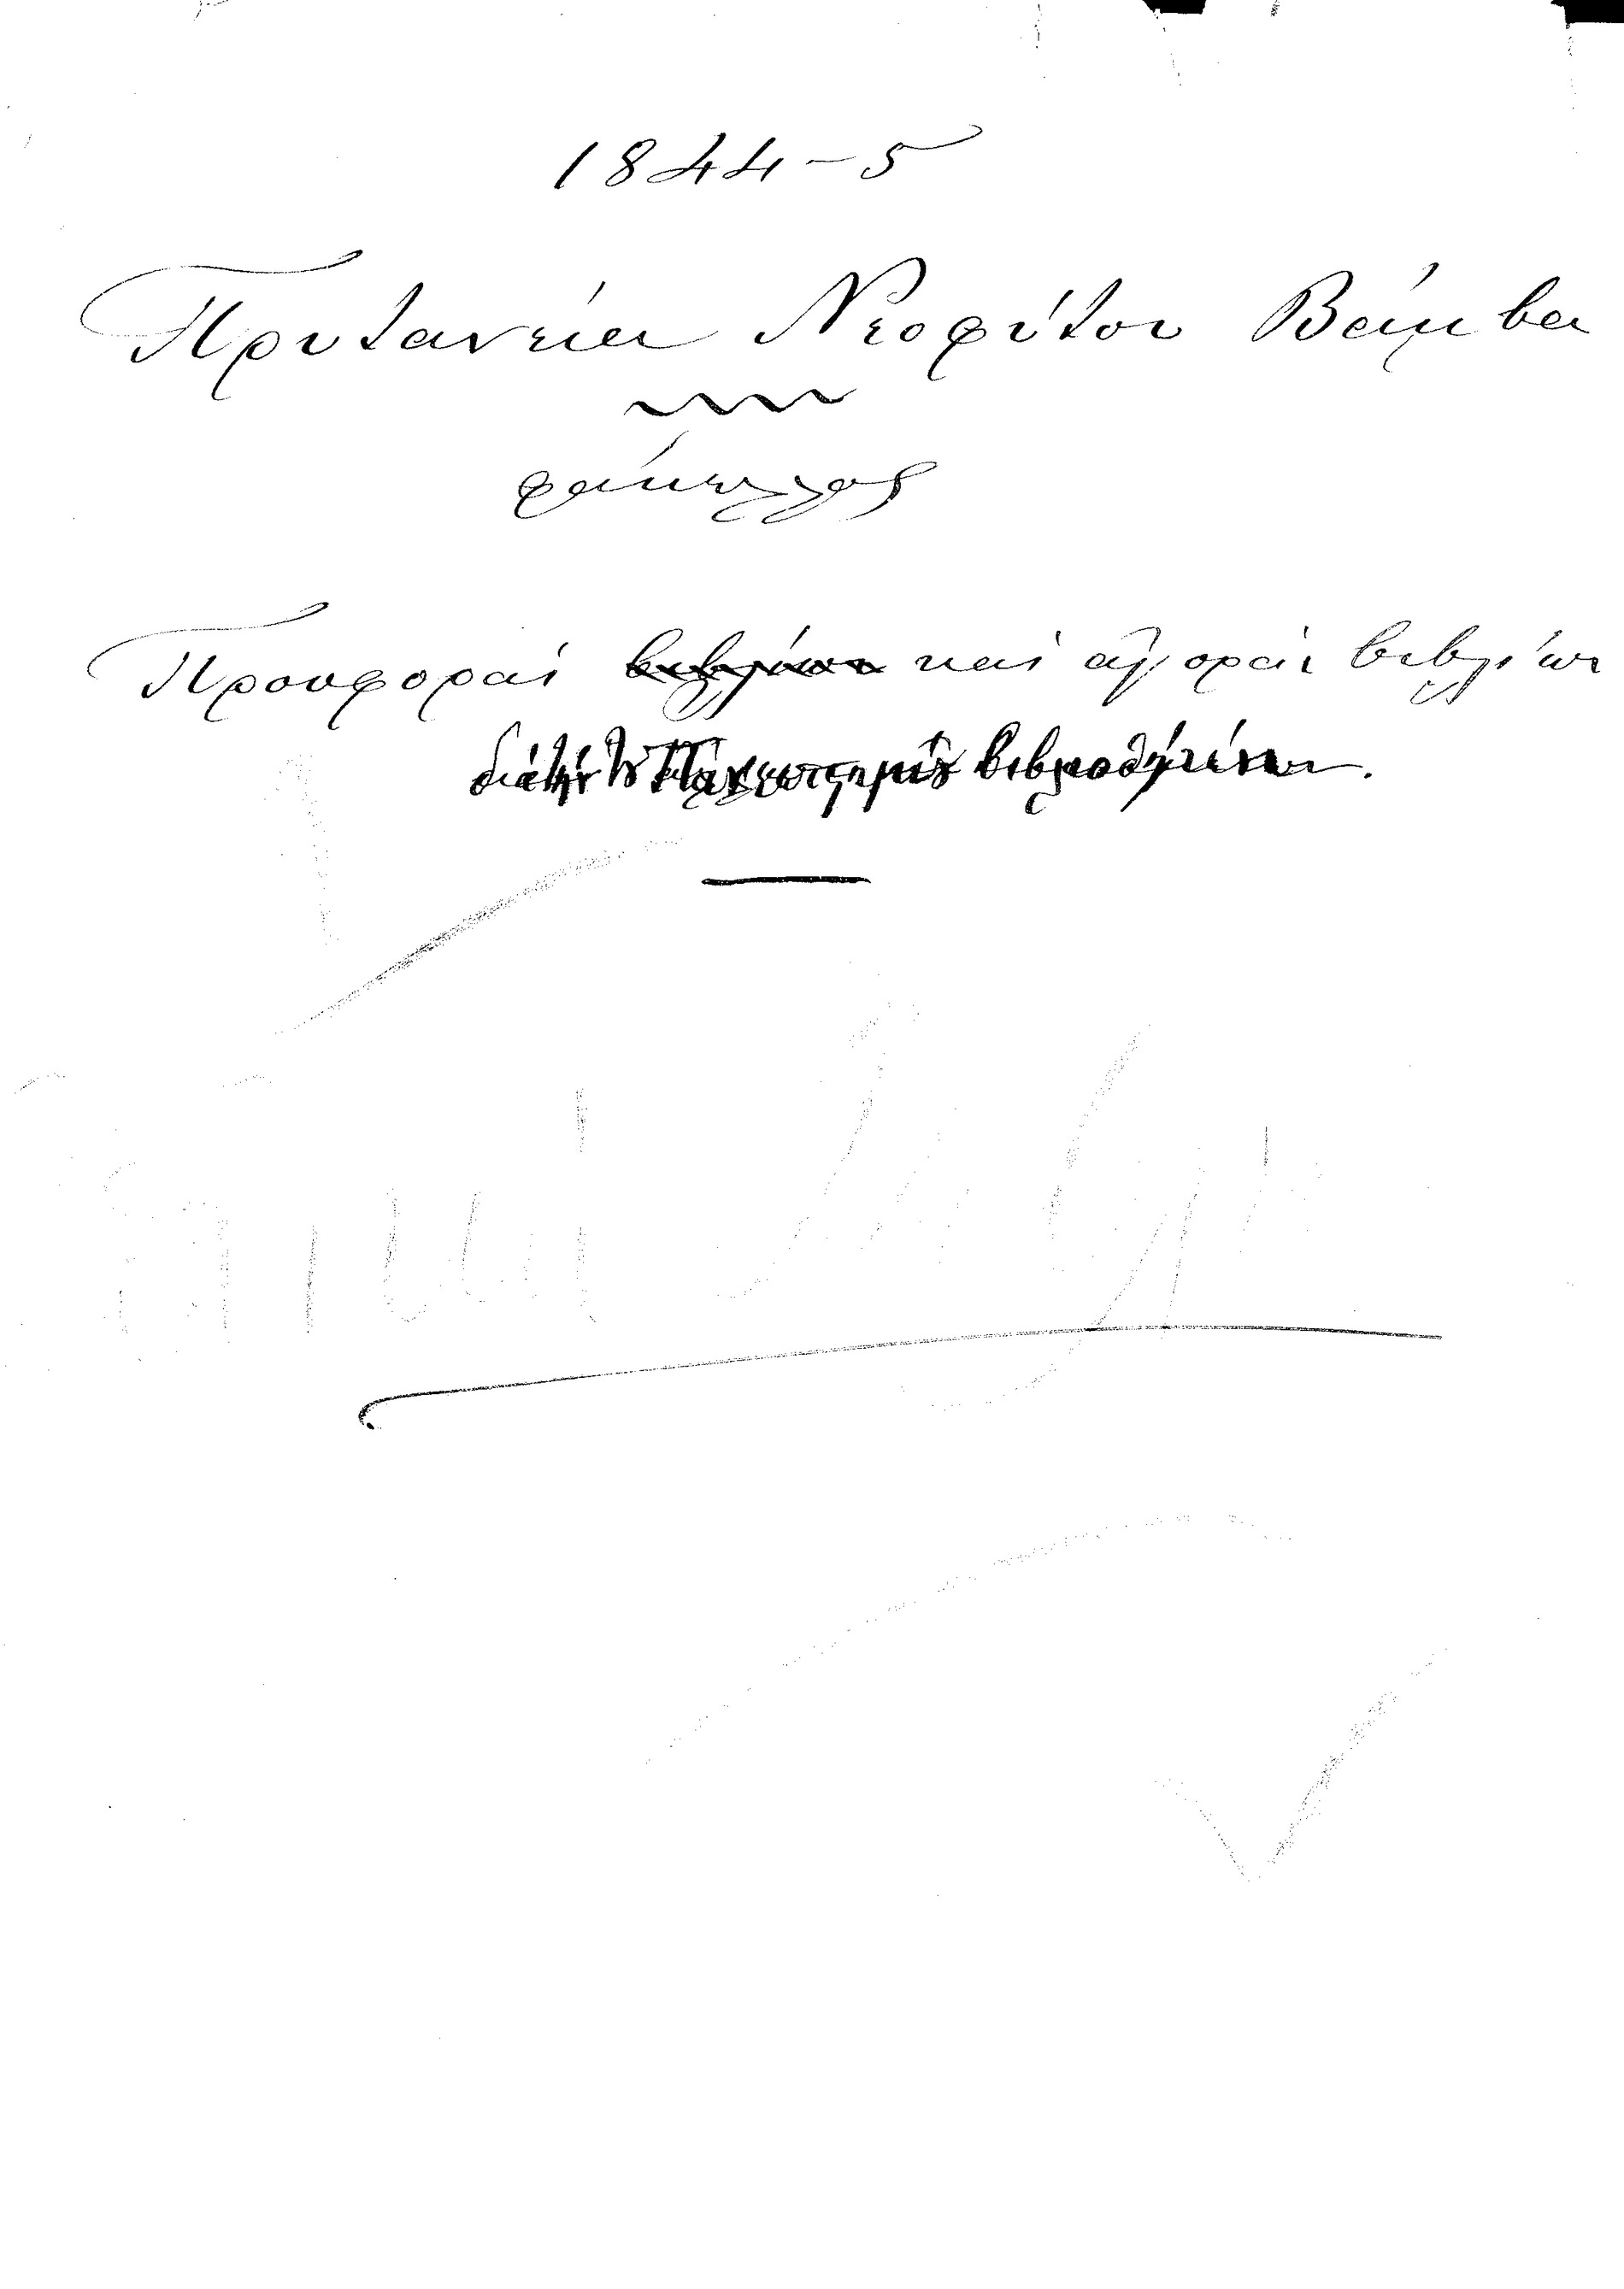 1844-5
Πρυτανεία Νεοφύτου Βάμβα
φάκελλος
Προσφοραί βιβλίων και αγοραί βιβλίων
διά την Πανεπιστημίου βιβλιοθήκην.